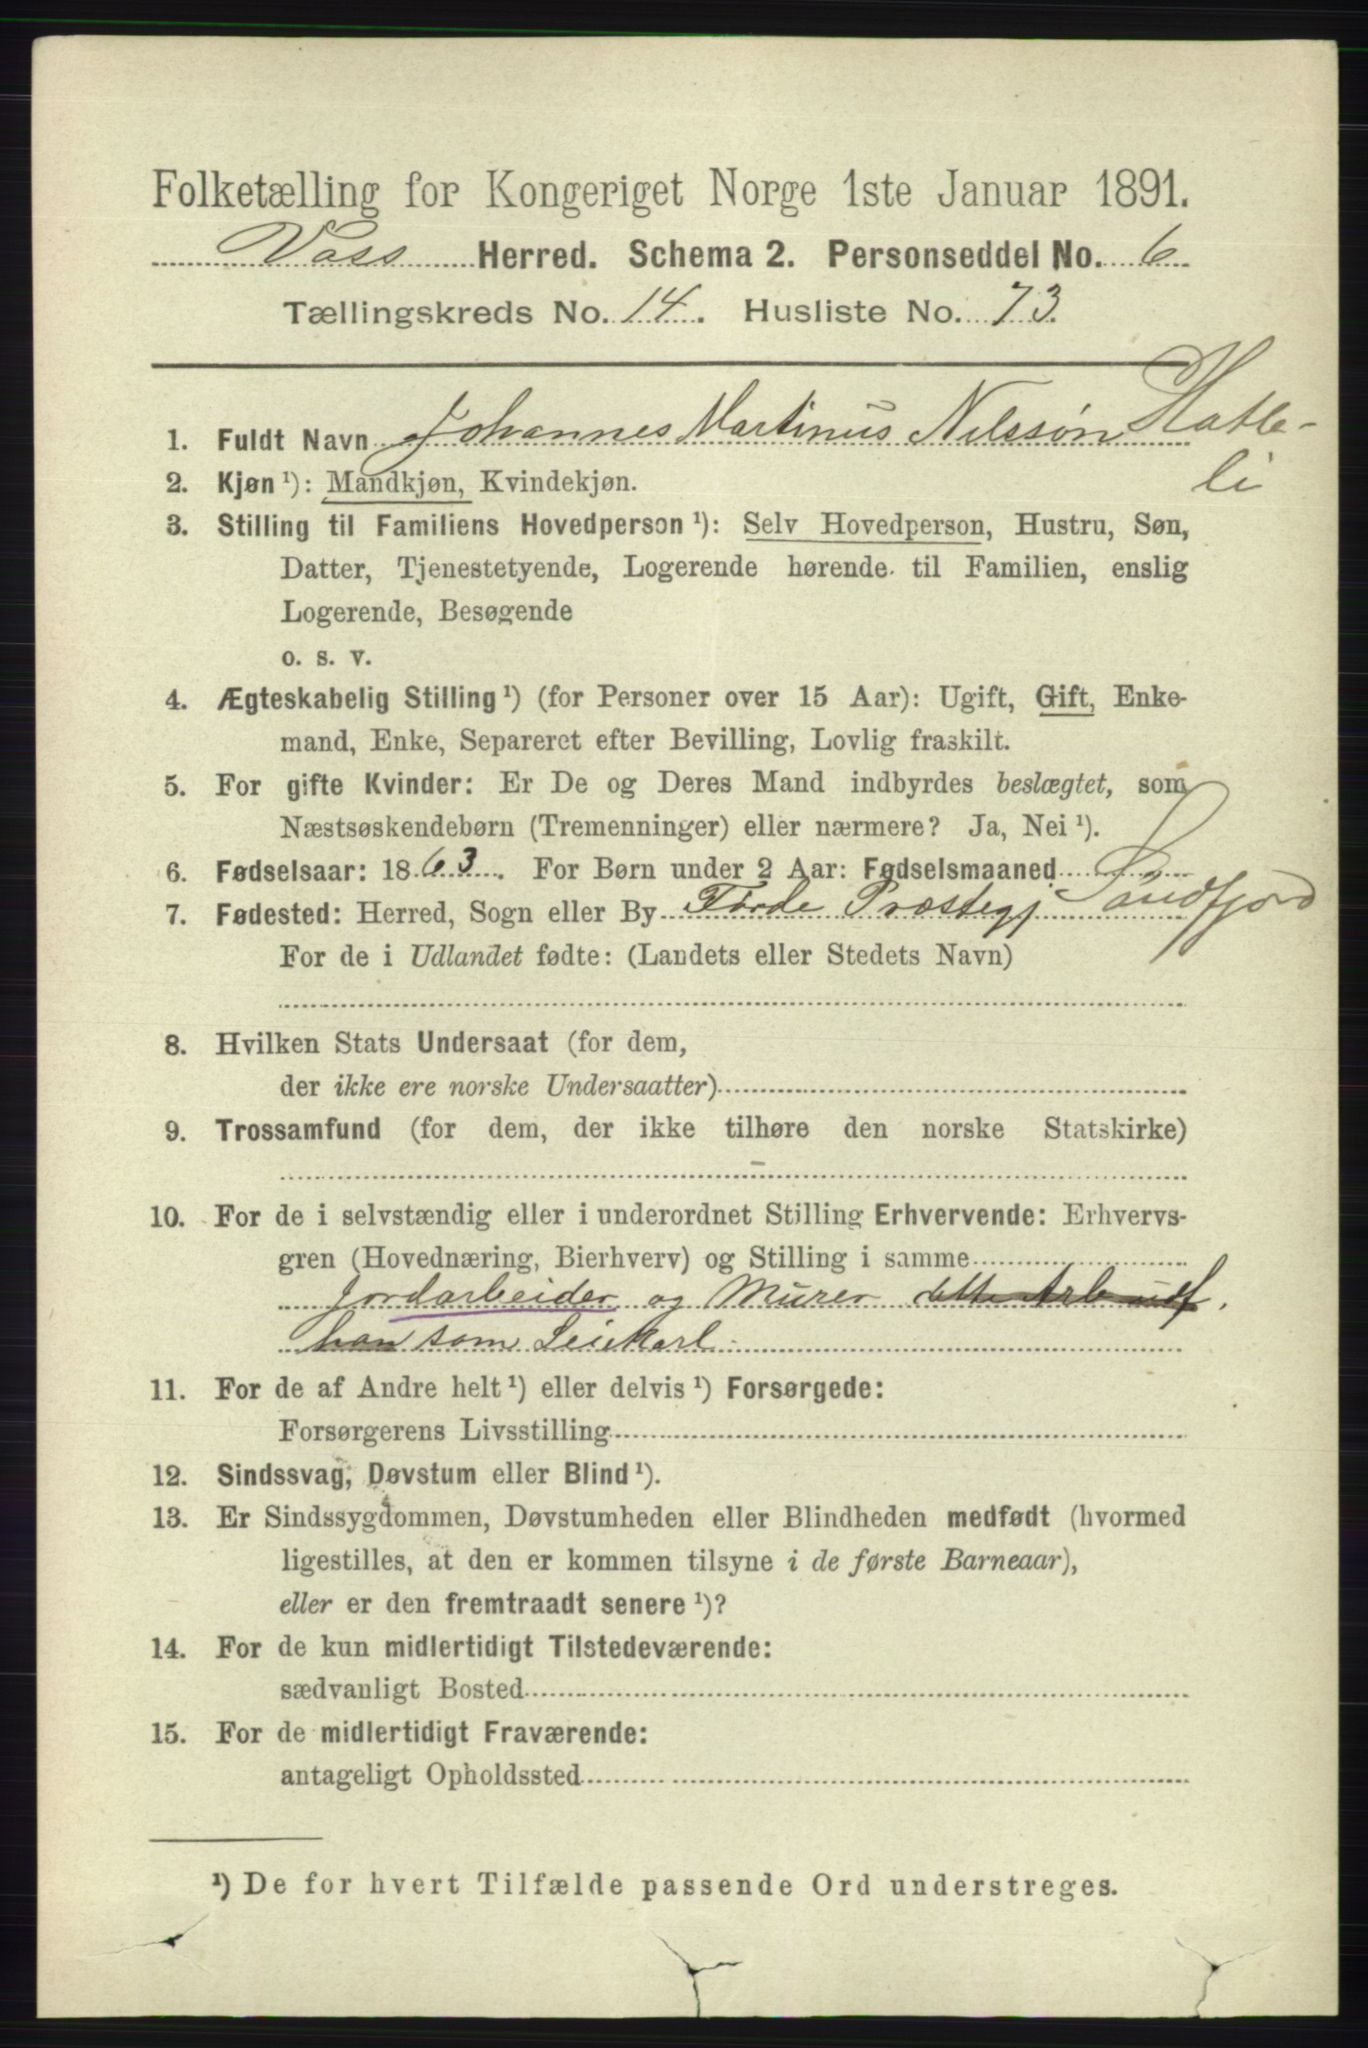 Folketælling for Kongeriget Norge 1ste Januar 1891.
Voss Herred. Schema 2. Personseddel No. 6
Tællingskreds No. 14. Husliste No. 73.
1. Fuldt Navn Johannes Martinus Nilssøn Hatle-
li
2. Kjøn ¹): Mandkjøn, Kvindekjøn.
3. Stilling til Familiens Hovedperson ¹): Selv Hovedperson, Hustru, Søn,
Datter, Tjenestetyende, Logerende hørende til Familien, enslig
Logerende, Besøgende
o. s. v.
4. Ægteskabelig Stilling ¹) (for Personer over 15 Aar): Ugift, Gift, Enke-
mand, Enke, Separeret efter Bevilling, Lovlig fraskilt.
5. For gifte Kvinder: Er De og Deres Mand indbyrdes beslægtet, som
Næstsøskendebørn (Tremenninger) eller nærmere? Ja, Nei ¹).
6. Fødselsaar: 1863. For Børn under 2 Aar: Fødselsmaaned
7. Fødested: Herred, Sogn eller By Førde Præstegj Søndfjord
For de i Udlandet fødte: (Landets eller Stedets Navn)
8. Hvilken Stats Undersaat (for dem,
der ikke ere norske Undersaatter)
9. Trossamfund (for dem, der ikke tilhøre den norske Statskirke)
10. For de i selvstændig eller i underordnet Stilling Erhvervende: Erhvervs-
gren (Hovednæring, Bierhverv) og Stilling i samme
Jordarbeider og Murer dette Arb udf.
han som Leiekarl
11. For de af Andre helt ¹) eller delvis ¹) Forsørgede:
Forsørgerens Livsstilling
12. Sindssvag, Døvstum eller Blind ¹).
13. Er Sindssygdommen, Døvstumheden eller Blindheden medfødt (hvormed
ligestilles, at den er kommen tilsyne i de første Barneaar),
eller er den fremtraadt senere ¹)?
14. For de kun midlertidigt Tilstedeværende:
sædvanligt Bosted
15. For de midlertidigt Fraværende:
antageligt Opholdssted
¹) De for hvert Tilfælde passende Ord understreges.